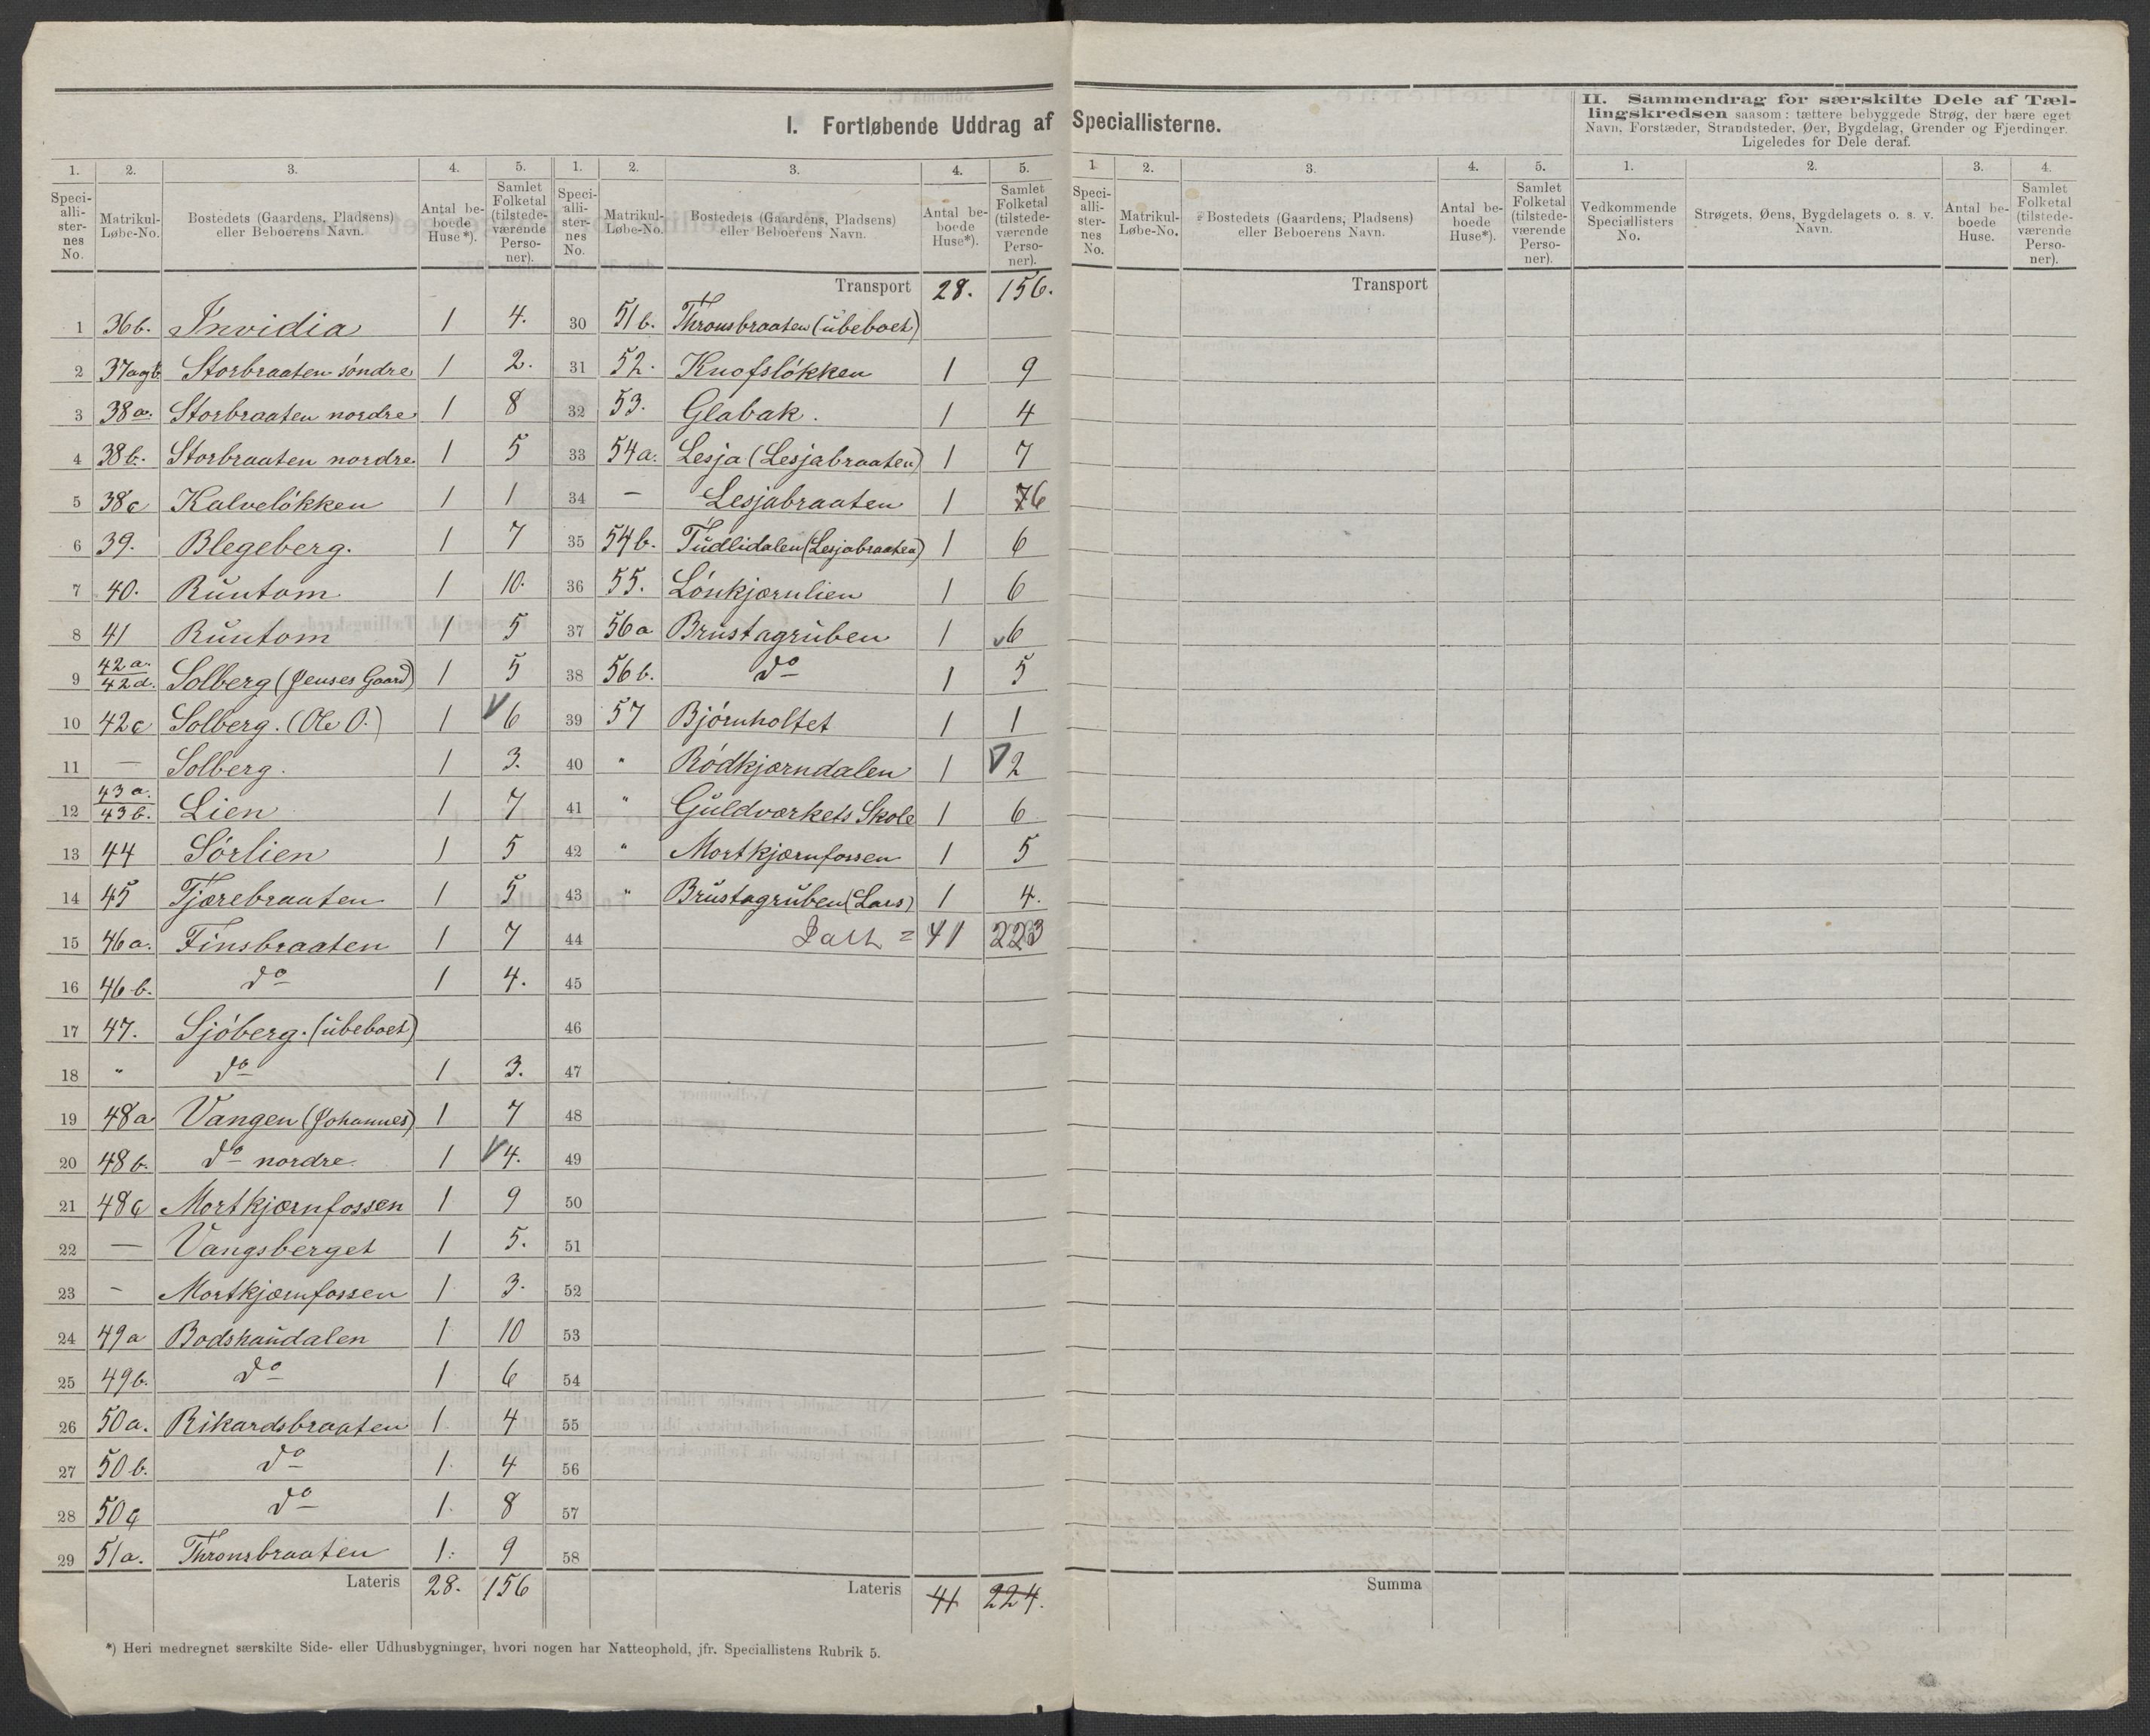 I. Fortløbende Uddrag af Speciallisterne.
II. Sammendrag for særskilte Dele af Tæl-
lingskredsen saasom: tættere bebyggede Strøg, der bære eget
Navn, Forstæder, Strandsteder, Øer, Bygdelag, Grender og Fjerdinger.
Ligeledes for Dele deraf.
1. 2. 3. 4. 5. 1. 2. 3. 4. 5. 1. 2. 3. 4. 5. 1. 2. 3. 4.
Speci-alli-ster-nes No. | Matrikul-Løbe-No. | Bostedets (Gaardens, Pladsens) eller Beboerens Navn. | Antal be-boede Huse*). | Samlet Folketal (tilstede-værende Perso-ner).
Speci-alli-ster-nes No. | Matrikul-Løbe-No. | Bostedets (Gaardens, Pladsens) eller Beboerens Navn. | Antal be-boede Huse*). | Samlet Folketal (tilstede-værende Perso-ner).
Speci-alli-ster-nes No. | Matrikul-Løbe-No. | Bostedets (Gaardens, Pladsens) eller Beboerens Navn. | Antal be-boede Huse*). | Samlet Folketal (tilstede-værende Perso-ner).
Vedkommende Speciallisters No. | Strøgets, Øens, Bygdelagets o. s. v. Navn. | Antal be-boede Huse. | Samlet Folketal (tilstede-værende Perso-ner).
1 36b. Invidia 1 4.
2 37agb Storbraaten søndre 1 2.
3 38a. Storbraaten nordre 1 8
4 38b. Storbraaten nordre 1 5
5 38c Kalveløkken 1 1
6 39. Blegeberg. 1 7
7 40. Runtom 1 10.
8 41 Runtom 1 5
9 42a. 42d. Solberg (Jenses Gaard) 1 5
10 42c Solberg. (Ole O.) 1 6
11 — Solberg. 1 3.
12 43a. 43b. Lien 1 7
13 44 Sørlien 1 5
14 45 Tjærebraaten 1 5
15 46a. Finsbraaten 1 7
16 46b. do 1 4.
17 47. Sjøberg. (ubeboet)
18 " do 1 3.
19 48a Vangen (Johannes) 1 7
20 48b. do nordre 1 4.
21 48c Mortkjærnfossen 1 9
22 — Vangsberget 1 5.
23 - Mortkjærnfossen 1 3.
24 49a Bodshaudalen 1 10
25 49b. do 1 6
26 50a. Rikardsbraaten 1 4
27 50b. do 1. 4
28 50c do 1. 8
29 51a. Thronsbraaten 1. 9
Lateris 28. 156
Transport 28. 156.
30 51b. Thronsbraaten (ubeboet)
31 52. Knofsløkken 1 9
32 53. Glabak. 1 4
33 54a. Lesja (Lesjabraaten) 1 7
34 — Lesjabraaten 1 76
35 54b. Tudlidalen (Lesjabraaten) 1 6
36 55. Lønkjærnlien 1 6
37 56a Brustagruben 1 6
38 56b. do 1 5
39 57 Bjørnholtet 1 1
40 " Rødkjærndalen 1 2
41 " Guldværkets Skole 1 6
42 " Mortkjærnfossen 1 5
43 " Brustagruben (Lars) 1 4.
44 = 41 223
45
46
47
48
49
50
51
52
53
54
55
56
57
58
Lateris 41 224.
Transport
Summa
*) Heri medregnet særskilte Side- eller Udhusbygninger, hvori nogen har Natteophold, jfr. Speciallistens Rubrik 5.